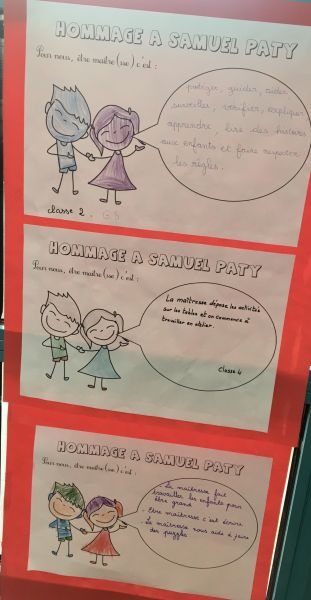 HOMMAGE A SAMUEL PATY
Pour nous, être maître(sse) c'est :
protéger, guider, aider
surveiller, vérifier, expliquer
apprendre, lire des histoires
aux enfants et faire respecter
les règles.
classe 2. GS
HOMMAGE A SAMUEL PATY
Pour nous, être maître(sse) c'est :
La maîtresse dépose les activités
sur les tables et on commence à
travailler en atelier.
Classe 4
HOMMAGE A SAMUEL PATY
Pour nous, être maître(sse) c'est :
- La maîtresse fait
travailler les enfants pour
être grand
- Etre maîtresse c'est écrire
- La maîtresse nous aide à faire
des puzzles